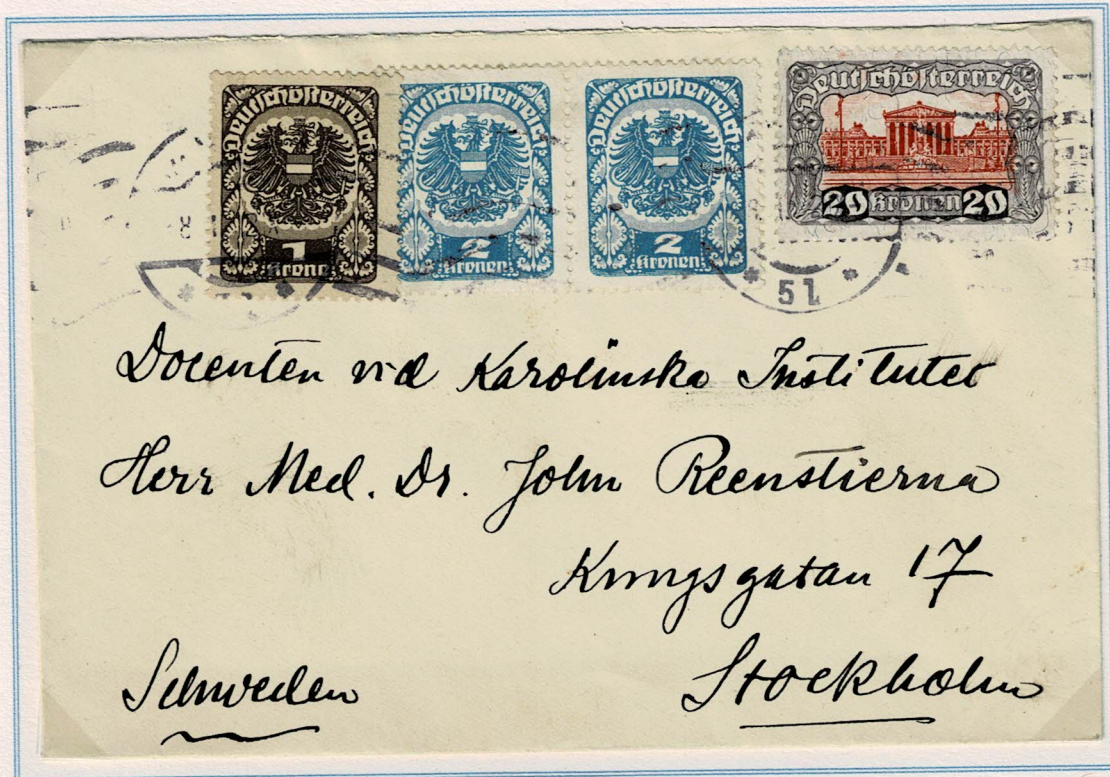 Deutschösterreich
1
Krone
Deutschösterreich
2
Kronen
Deutschösterreich
2
Kronen
Deutschösterreich
20 Kronen 20
* 51 *
Docenten vid Karolinska Institutet
Herr Med. Dr. John Reenstierna
Kungsgatan 17
Schweden
Stockholm